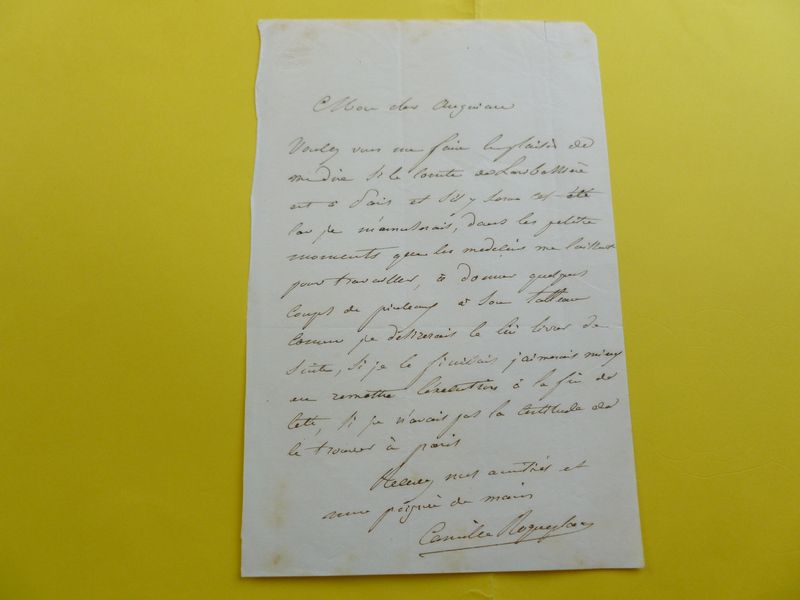 Mon cher
Voulez vous me faire le plaisir de
me dire si le comte de
est à Paris et s'il y sera cet été
car je m'amuserais, dans les petits
moments que les medecins me laissent
pour travailler, à donner quelques
coups de pinceau à son tableau
comme je desirerais le lui livrer de
suite, si je le finissais j'aimerais mieux
en remettre l'execution à la fin de
l'été, si je n'avais pas la certitude de
le trouver à paris
Recevez mes amitiés et
une poignée de mains
Camille Roqueplan